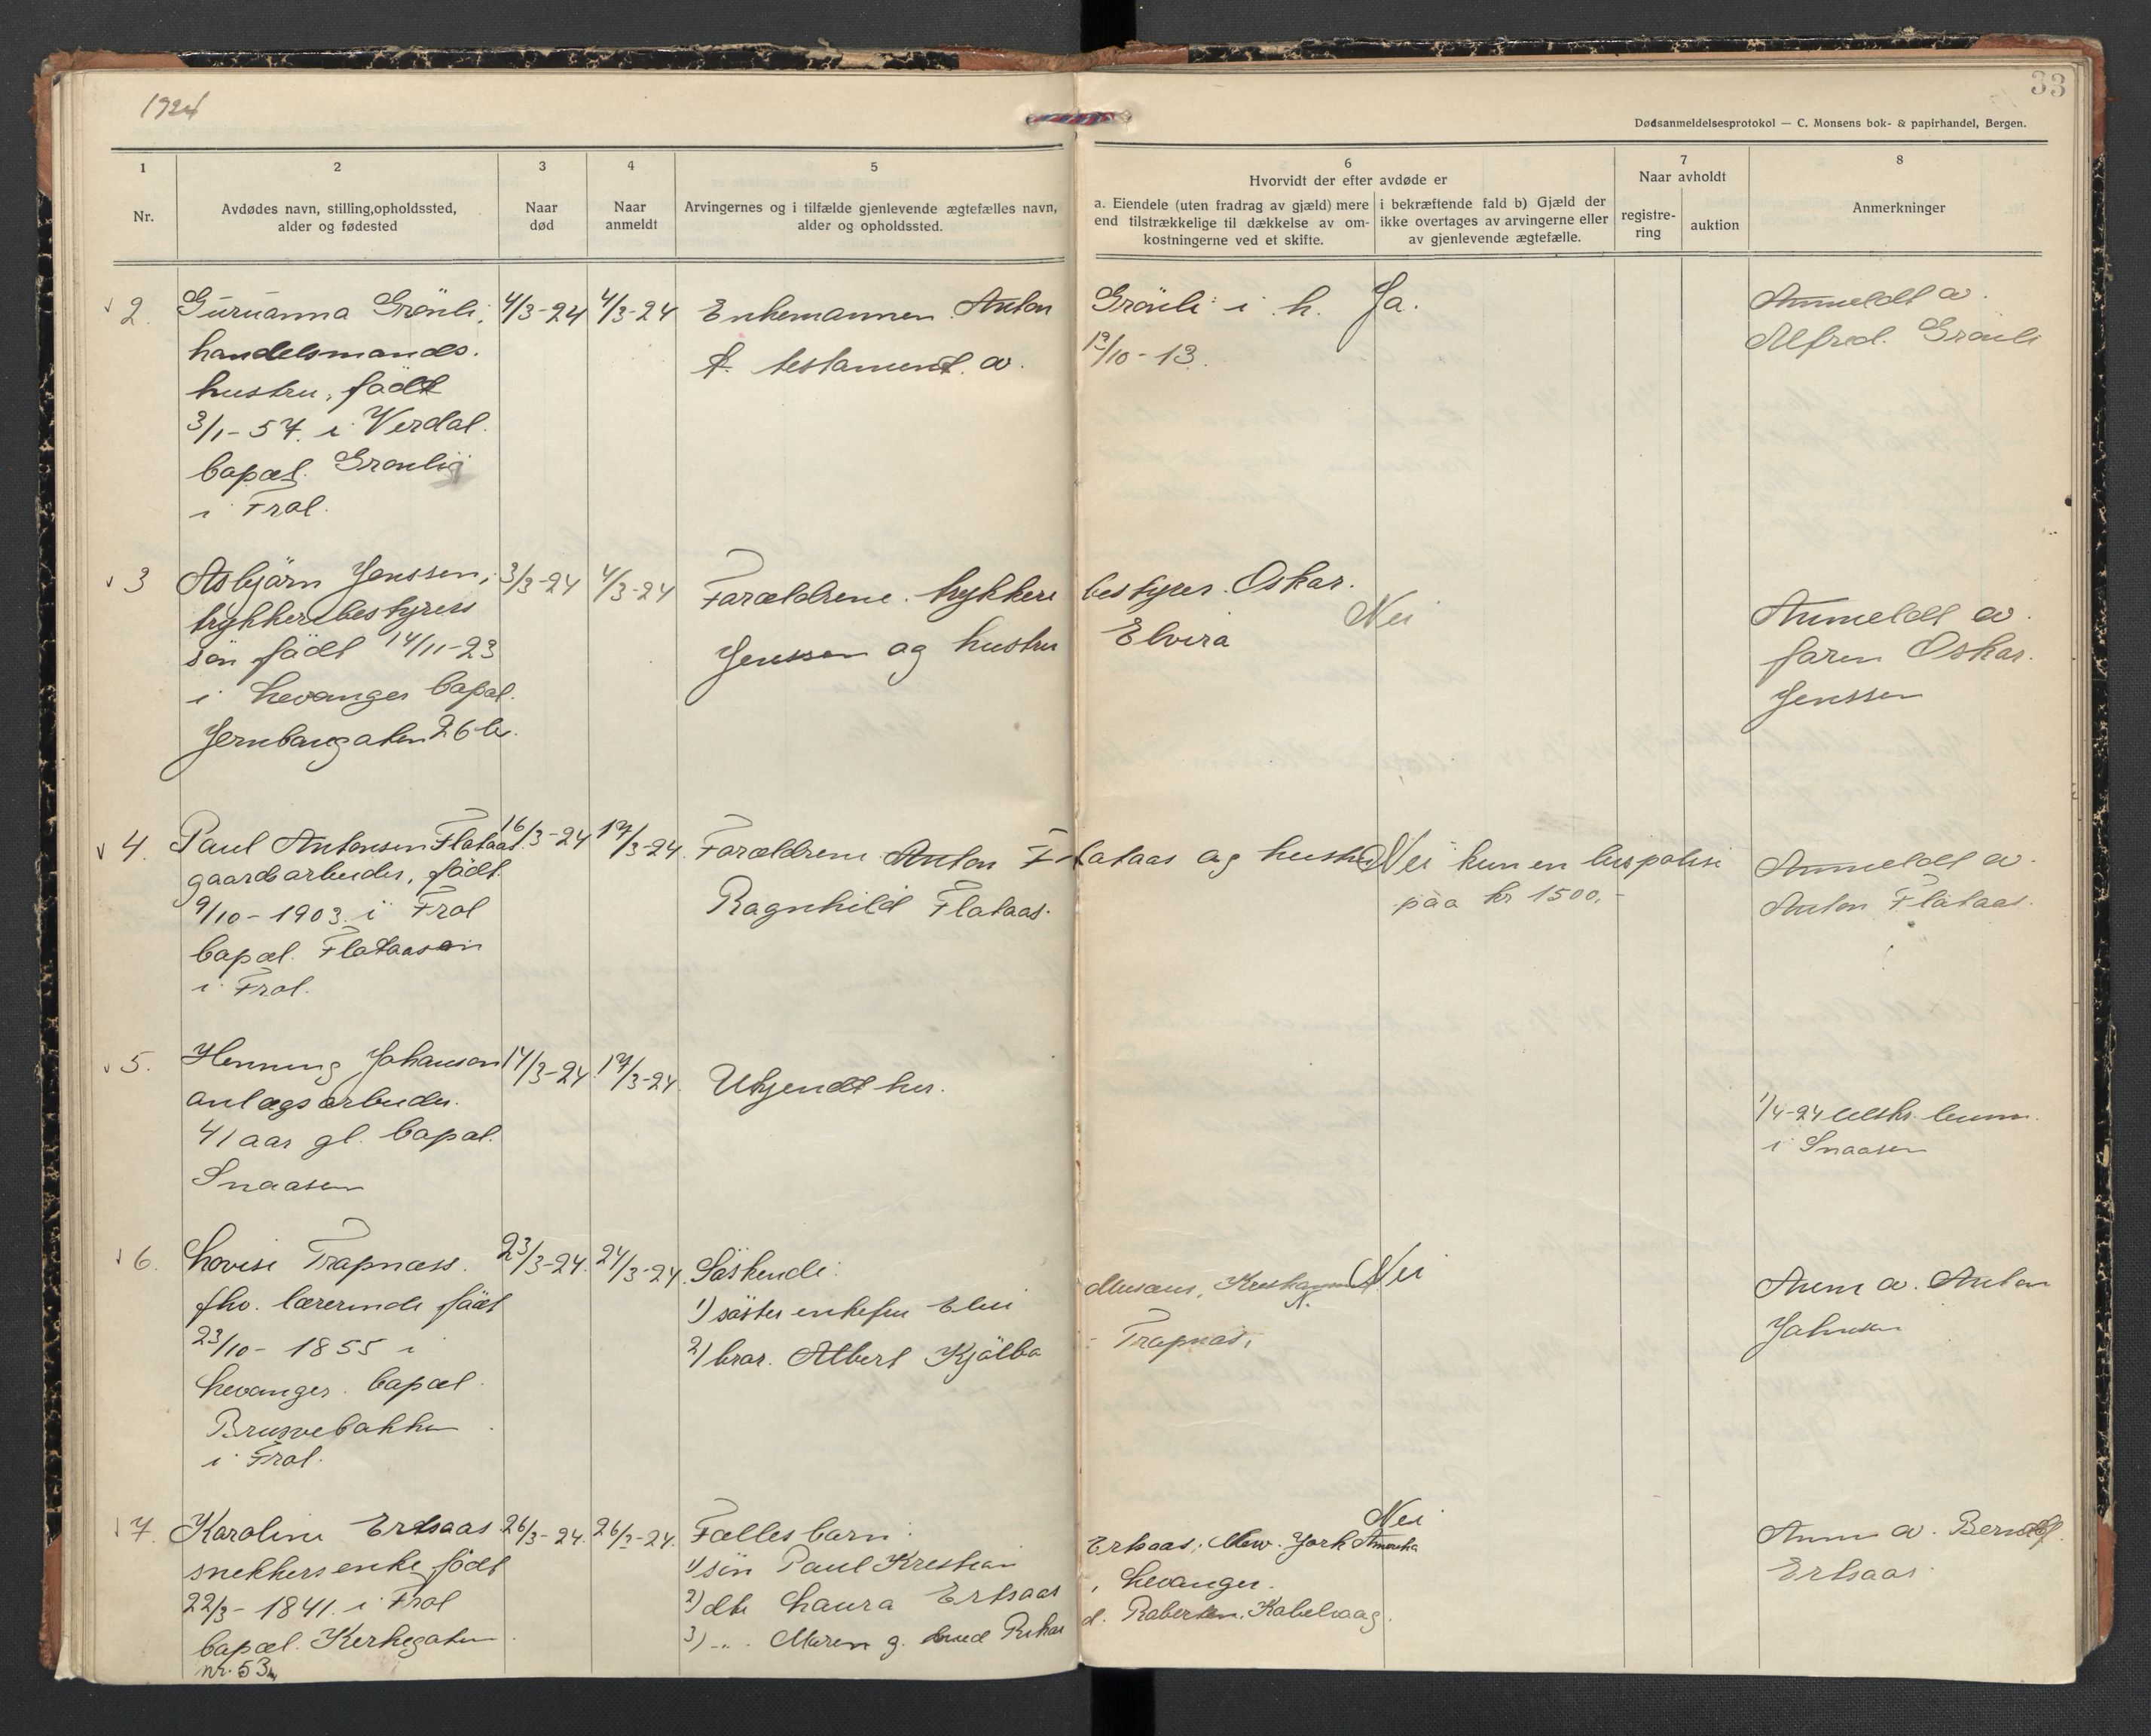 1924
33
Dødsanmeldelsesprotokol — C. Monsens bok- & papirhandel, Bergen.
1
Nr.
2
Avdødes navn, stilling,opholdssted,
alder og fødested
3
Naar
død
4
Naar
anmeldt
5
Arvingernes og i tilfælde gjenlevende ægtefælles navn,
alder og opholdssted.
6
Hvorvidt der efter avdøde er
a. Eiendele (uten fradrag av gjæld) mere
end tilstrækkelige til dækkelse av om-
kostningerne ved et skifte.
i bekræftende fald b) Gjæld der
ikke overtages av arvingerne eller
av gjenlevende ægtefælle.
7
Naar avholdt
registre-
ring
auktion
8
Anmerkninger
2. Guruanna Grönli, 4/3-24 4/3-24 Enkemannen Anton Grönli i h. Ja. Anmeldt av
handelsmands. testament av 13/10-13. Alfred Grönli
hustru, födt
3/1-57. i Verdal.
bopæl. Gronli
i Frol.
3 Asbjörn Jenssen, 3/3-24 4/3-24 Forældrene trykkeribestyrer Oskar Nei Anmeldt av
trykkeribestyrers Jenssen og hustru Elvira faren Oskar
sön födt 14/11-23 Jenssen
i Levanger bopæl.
Jernbangaten 26
4. Paul Antonsen Flataas 16/3-24 17/3-24. Forældrene Anton Flataas og hustru Nei kun en livspolise Anmeldt av
gaardsarbeider, födt Ragnhild Flataas. paa kr 1500,- Anton Flataas.
9/10-1903 i Frol
bopæl. Flataasen
i Frol.
5. Henning Johanson 14/3-24. 17/3-24. Ukjendt her.
anlægsarbeider. 1/4-24 utskr.
41 aar gl. bopæl. i Snaasen
Snaasen
6. Lovise Trapnæss. 23/3-24. 24/3-24. Söskende: Nei Anm av. Anton
fhv. lærerinde födt 1) söster enkefru
23/10-1855 i 2) bror. Albert Trapnæs,
Levanger. bopæl.
Brusvebakken
i Frol.
7. Karoline Ertsaas 26/3-24. 26/3-24. Fælles barn: Nei Anm av.
snekkers enke födt 1) sön Paul Kristian Ertsaas, New-York Amerika Ertsaas
22/3-1841. i Frol 2) dtr Laura Ertsaas, Levanger.
bopæl. Kirkegaten 3) -"- Maren g. med Rikard Robertsen. Kabelvaag.
nr. 53